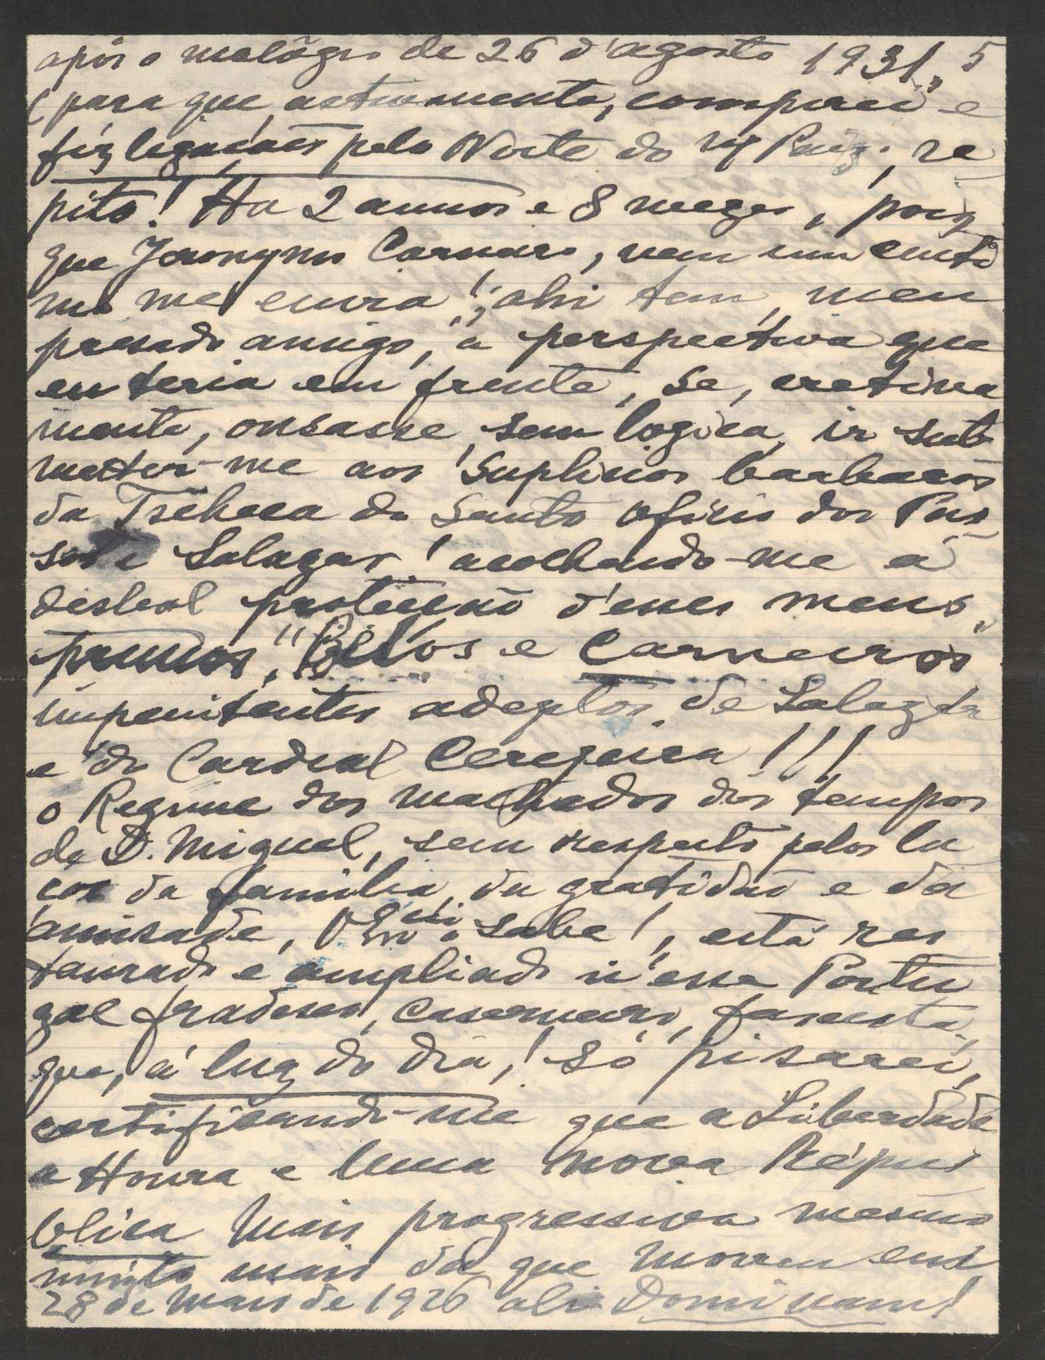 após o malôgro de 26 d'agosto 1931, 5
(para que, activamente, conspirei e
fiz ligações pelo Norte do Paiz, re
pito! Ha 2 annos e 8 mezes, pois
que Jeronymo Carneiro, nem um centi
mo me envia!; ahi tem, meu
presado amigo, a perspectiva que
eu teria em frente, se, cretina
mente, ousasse, sem logica, ir sub
metter-me aos suplicios barbaros
da Tscheca do Santo Oficio dos Pas
sos e Salazar! acolhendo-me á
desleal protecção d'esses meus
primos, "Bellos e Carneiros"
impenitentes adeptos de Salazar
e do Cardial Cerejeira!!!
O Regime dos malhados dos tempos
de D. Miguel, sem respeito pelos la
ços da familia, da gratidão e da
amisade, V. Exci. sabe!, está res
taurado e ampliado n'esse Portu
gal fradesco, caserneiro, fascista,
que, á luz do dia, só pisarei,
certificando-me que a Liberdade
a Honra e Uma nova Répu
blica Mais progressiva mesmo
muito mais da que morreu em
28 de Maio de 1926 ali Dominam!